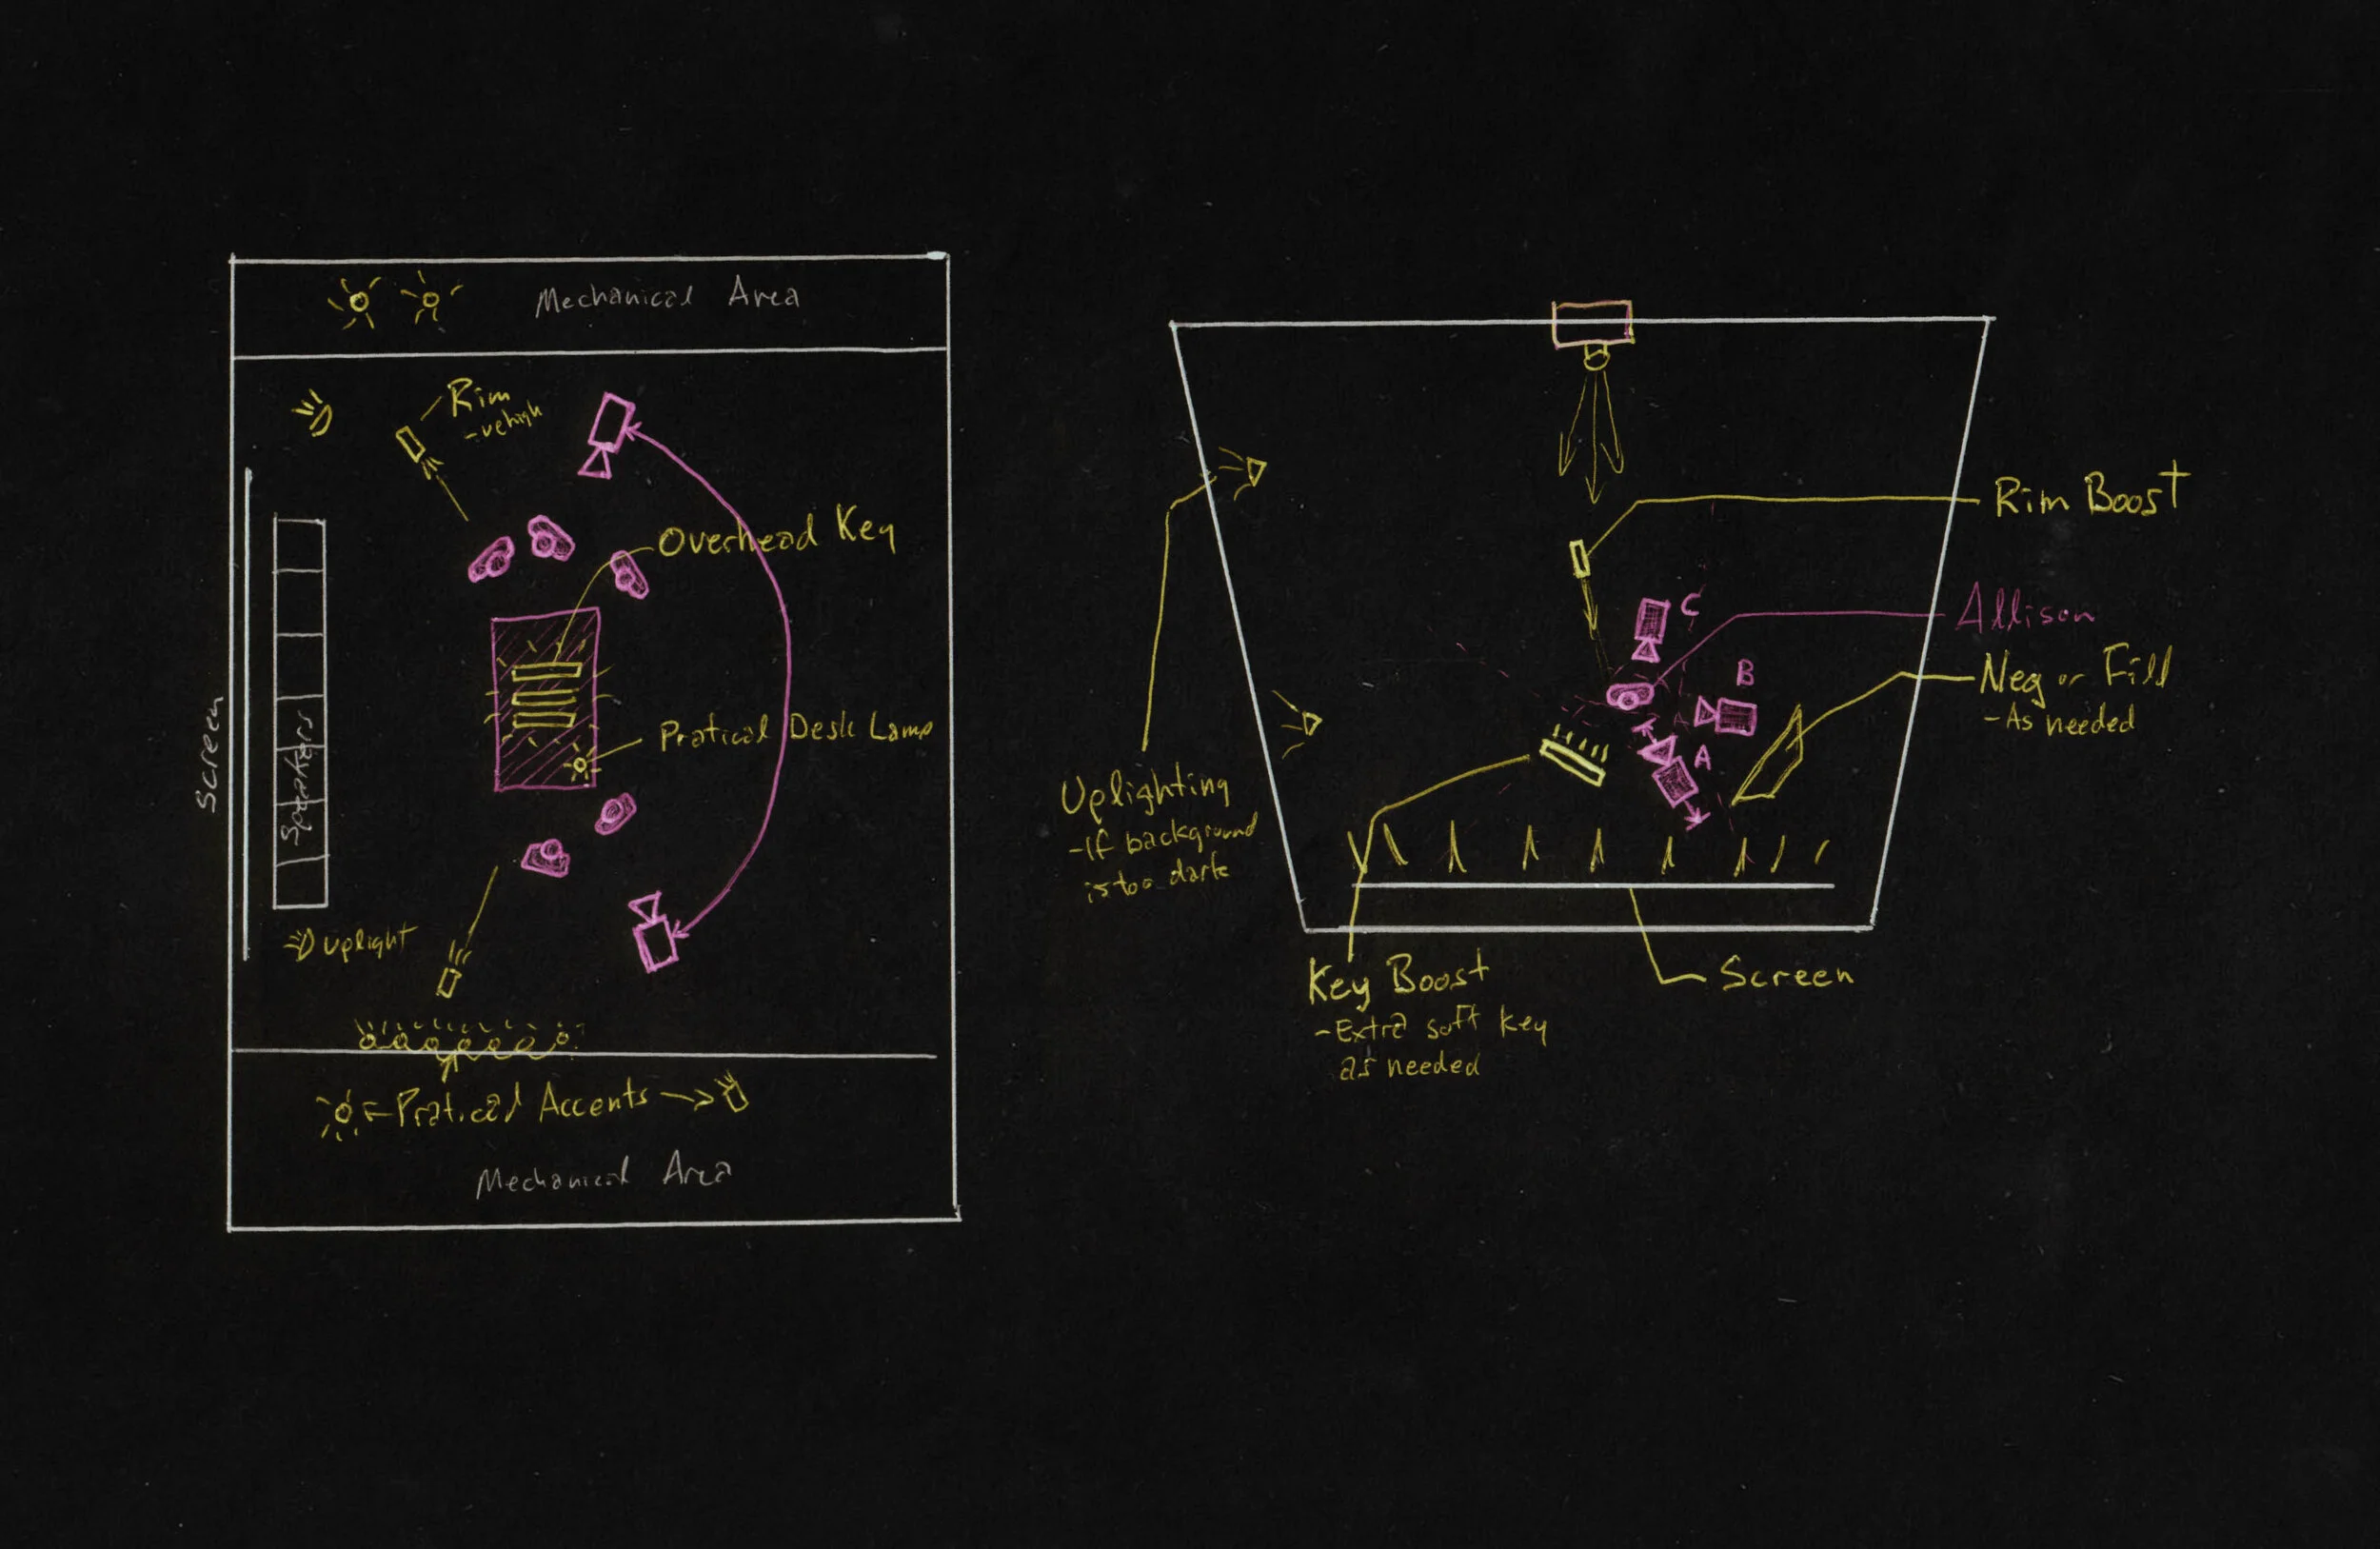 Mechanical Area
Rim
Overhead Key
Pratical Desk Lamp
Screen
Speakers
uplight
Pratical Accents
Mechanical Area
Rim Boost
C
Allison
B
Neg or Fill
- As needed
A
Uplighting
- If background
is too dark
Key Boost
- Extra soft key
as needed
Screen